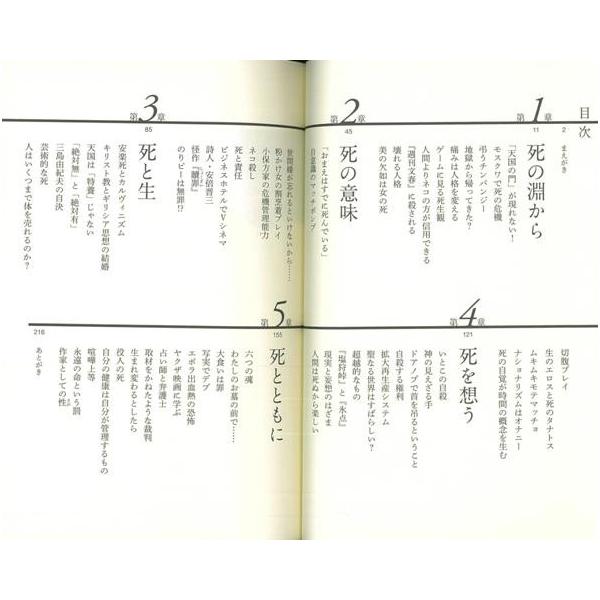 目次
2 まえがき
第1章
11
死の淵から
「天国の門」が現れない!
モスクワで死の危機
弔うチンパンジー
地獄から帰ってきた?
痛みは人格を変える
ゲームに見る死生観
人間よりネコの方が信用できる
『週刊文春』に殺される
壊れる人格
美の欠如は女の死
第2章
45
死の意味
「おまえはすでに死んでいる」
自意識のマッチポンプ
世間様が忘れるといけないから……
粉かけ女の割烹着プレイ
小保方家の危機管理能力
ネコ殺し
死と責任
ビジネスホテルでVシネマ
詩人・安倍晋三
怪作『贖罪』
のりピーは無罪!?
第3章
85
死と生
安楽死とカルヴィニズム
キリスト教とギリシア思想の結婚
天国は「特養」じゃない
「絶対無」と「絶対有」
三島由紀夫の自決
芸術的な死
人はいくつまで体を売れるのか?
切腹プレイ
生のエロスと死のタナトス
ムキムキモテマッチョ
ナショナリズムはオナニー
死の自覚が時間の概念を生む
第4章
121
死を想う
いとこの自殺
神の見えざる手
ドアノブで首を吊るということ
拡大再生産システム
自殺する権利
聖なる世界はすばらしい?
超越的なもの
『塩狩峠』と『氷点』
現実と妄想のはざま
人間は死ぬから楽しい
第5章
155
死とともに
六つの魂
わたしのお墓の前で……
大食いは罪
写実でデブ
エボラ出血熱の恐怖
ヤクザ映画に学ぶ
占い師と弁護士
取材をかねたような裁判
生まれ変わるとしたら
役人の死
自分の健康は自分が管理するもの
喧嘩上等
永遠の命という罰
作家としての性
216 あとがき